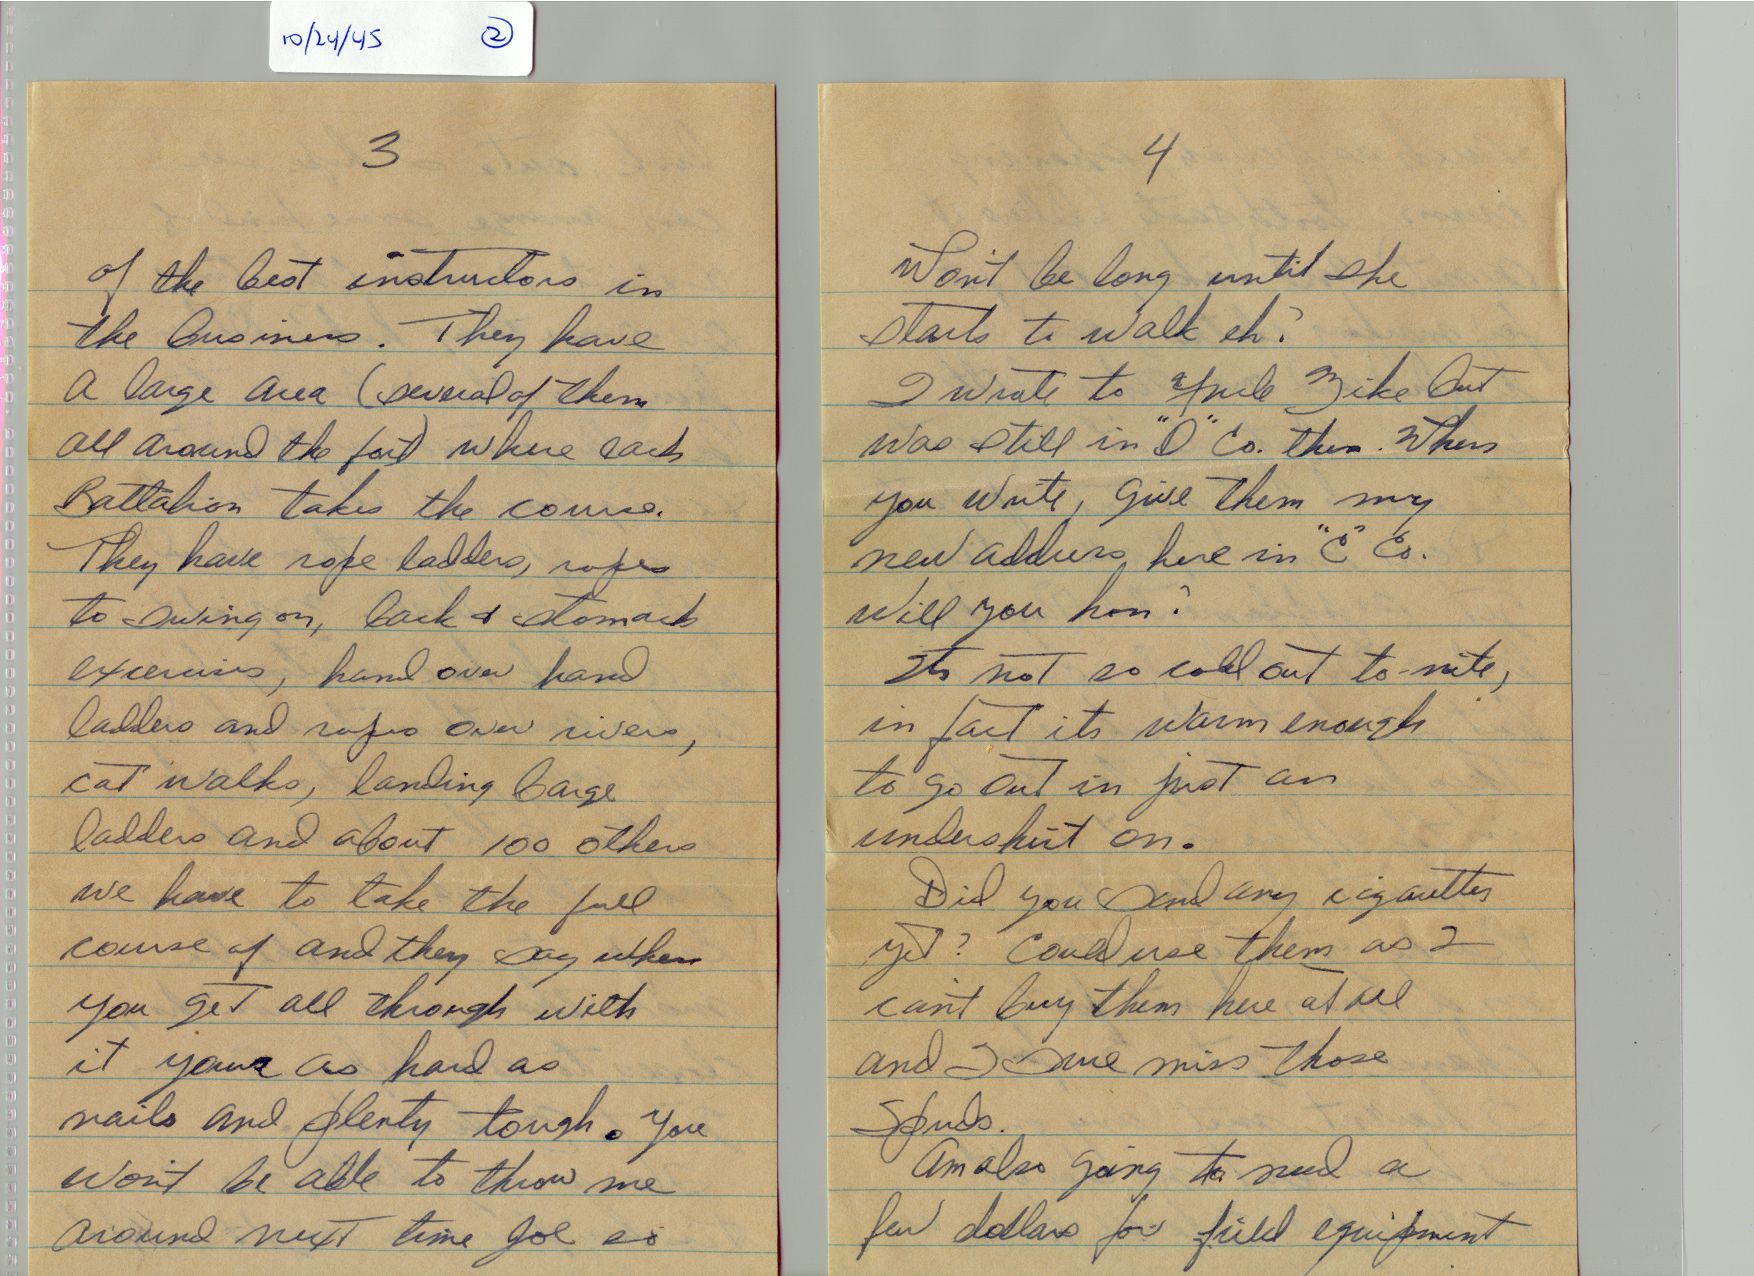 10/24/45 2
3
of the best instructors in
the business. They have
a large area (several of them
all around the fort) where each
Battalion takes the course.
They have rope ladders, ropes
to swing on, back & stomach
excercises, hand over hand
ladders and ropes over rivers,
cat walks, landing barge
ladders and about 100 others
we have to take the full
course of and they say when
you get all through with
it your as hard as
nails and plenty tough. You
won't be able to throw me
around next time Joe so
4
Won't be long until she
starts to walk eh?
I wrote to Mike but
was still in "D" Co. then. When
you write, give them my
new address here in "C" Co.
Will you hon?
Its not so cold out to-nite,
in fact its warm enough
to go out in just an
undershirt on.
Did you send any cigarettes
yet? Could use them as I
can't buy them here at all
and I sure miss those
Spuds.
Am also going to need a
few dollars for field equipment